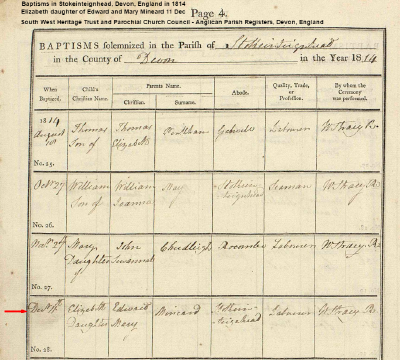 Baptisms in Stokeinteignhead, Devon, England in 1814
Elizabeth daughter of Edward and Mary Mineard 11 Dec
South West Heritage Trust and Parochial Church Council - Anglican Parish Registers, Devon, England
Page 4.
BAPTISMS solemnized in the Parish of Stokeinteignhead
in the County of Devon in the Year 1814
When Baptized. Child's Christian Name. Parents Name. Abode. Quality, Trade, or Profession. By whom the Ceremony was performed.
Christian. Surname.
1814
August Thomas Thomas Labourer W. Stracy R.
Son of Elizabeth
No. 25.
Octr. 27 William William Stokein- Seaman W. Stracy R.
Son of Joanna teignhead
No. 26.
Novr. 27 Mary John Chudleigh Labourer W. Stracy R.
Daughter Susannah
of
No. 27.
Decr. Elizabeth Edward Mineard Stokein- Labourer W. Stracy R.
Daughter Mary teignhead
No. 28.